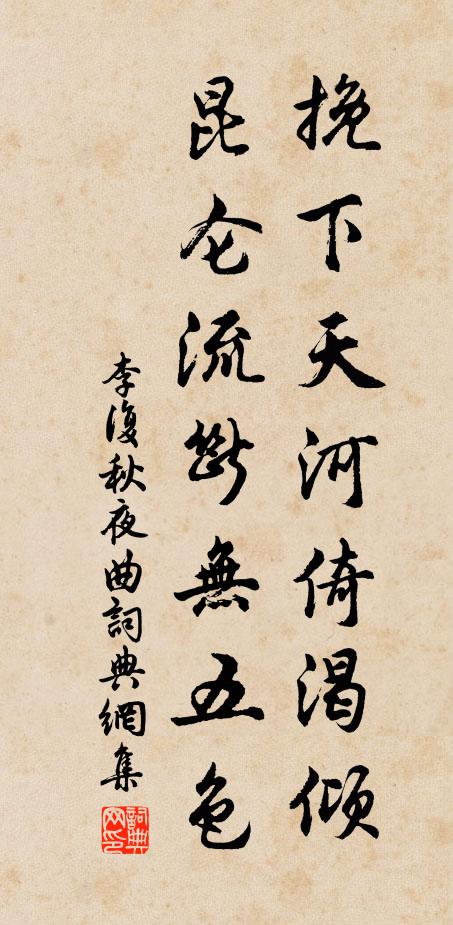 挽下天河倚渴倾
昆仑流斷無五色
李復秋夜曲詞典網集
詞典网印